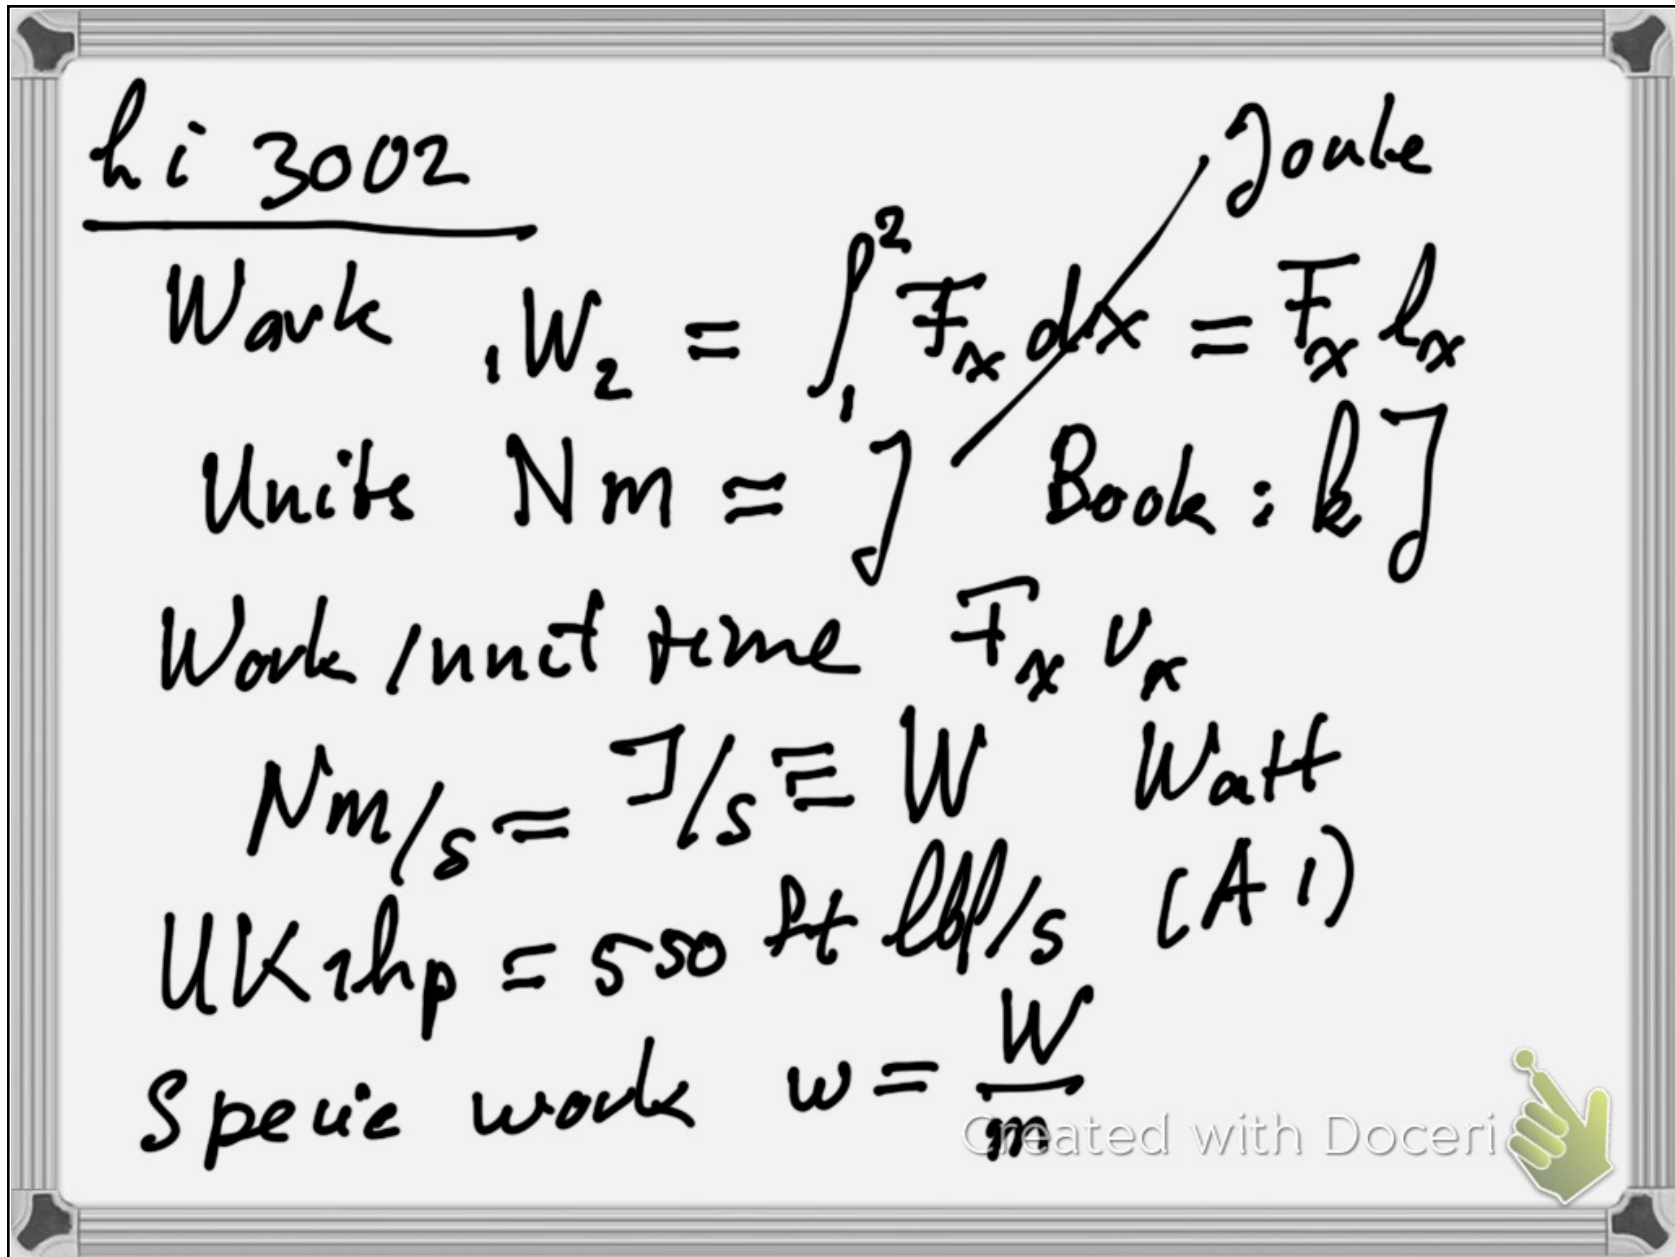 hi 3002
Joule
Work ₁W₂ = ∫₁² Fₓ dx = Fₓ lₓ
Units Nm = J Book: kJ
Work/unit time Fₓ vₓ
Nm/s = J/s ≡ W Watt
UK 1hp = 550 ft lbf/s (A1)
Specic work w = W/m
Created with Doceri